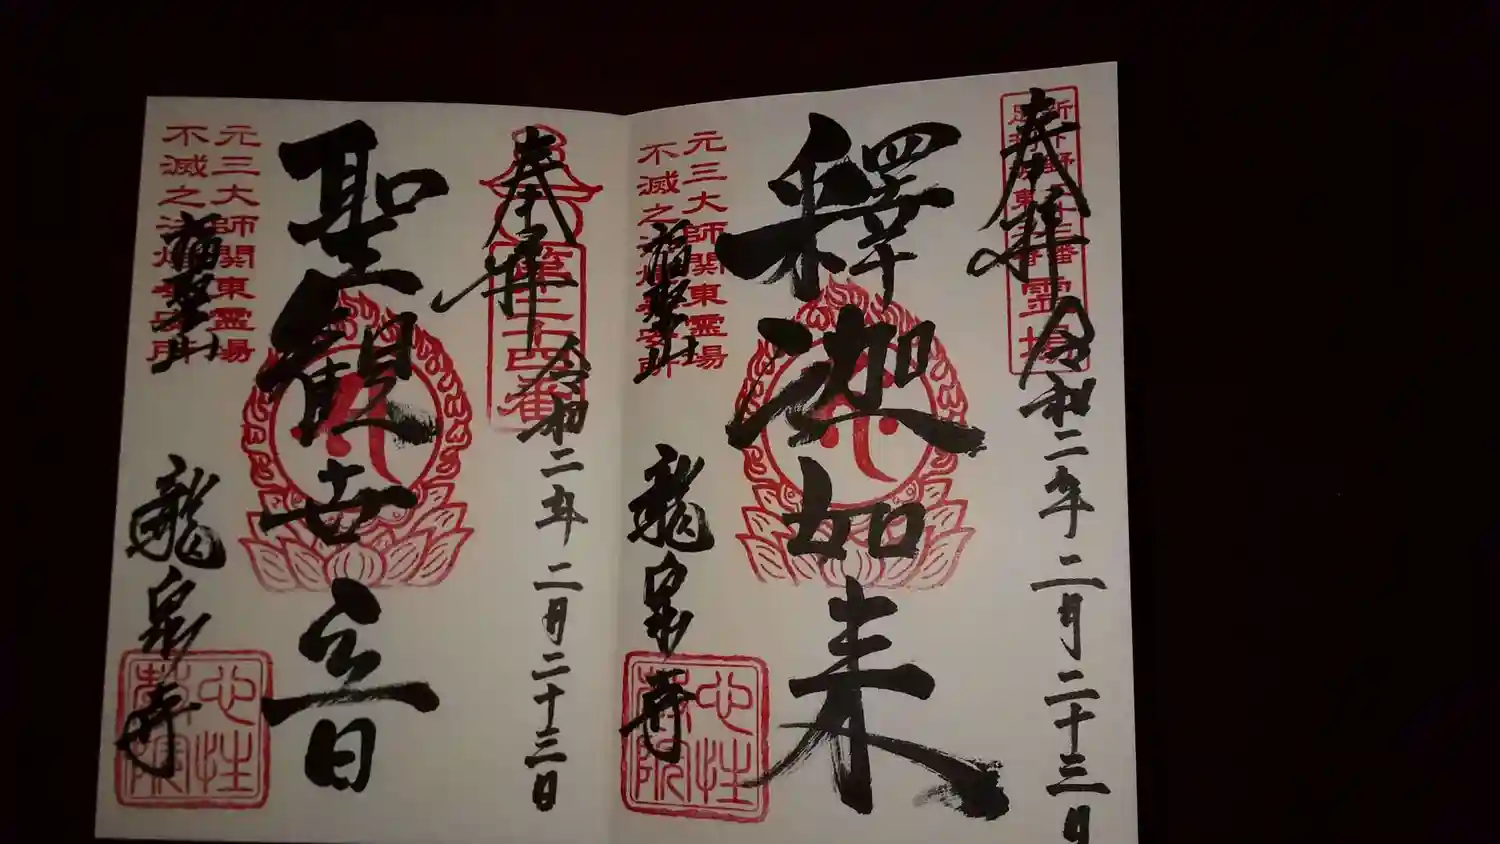 奉拝 令和二年 二月二十三日
釋迦如来
元三大師関東霊場
不滅之法燈安所
龍泉寺
心性
院
奉拝 令和二年 二月二十三日
第三十四番
聖観世音
元三大師関東霊場
不滅之法燈安所
龍泉寺
心性
院